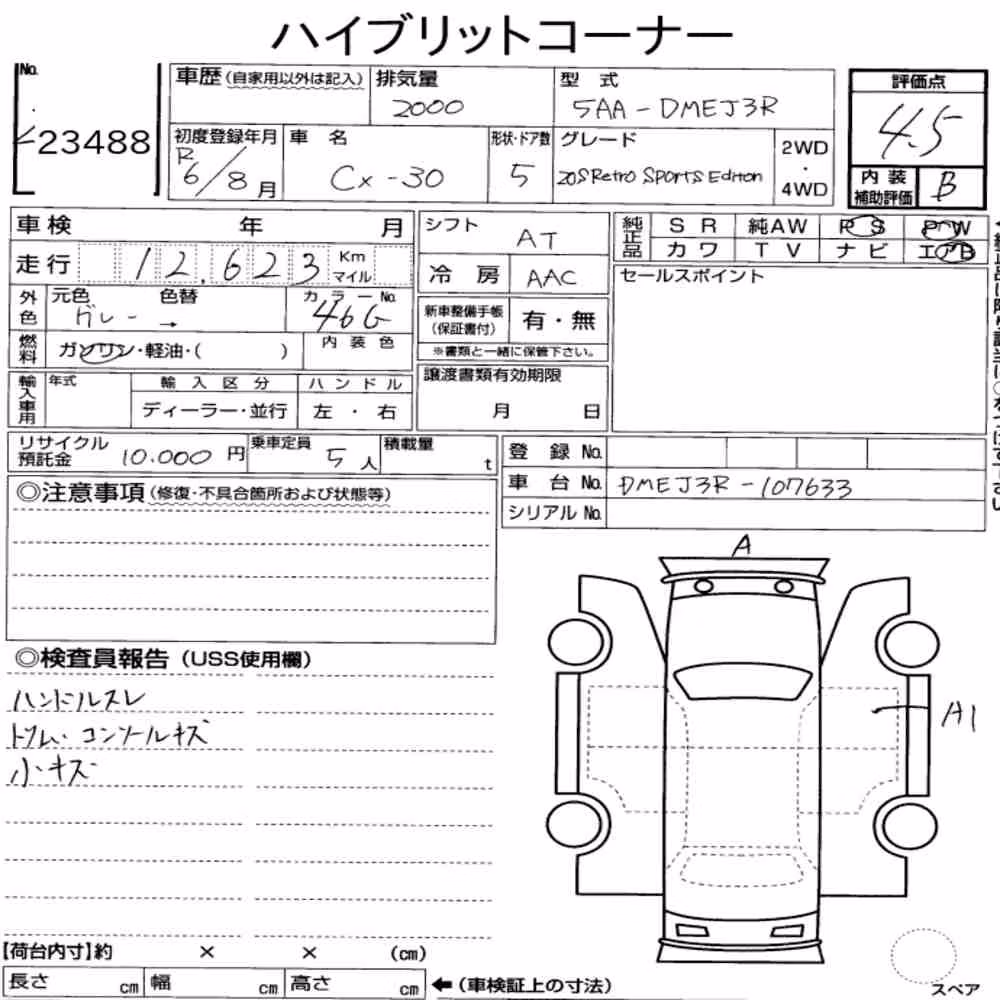 ハイブリットコーナー
No.
23488
車歴(自家用以外は記入)
排気量
2000
型式
5AA-DMEJ3R
評価点
4.5
初度登録年月
R
6/8月
車名
Cx-30
形状・ドア数
5
グレード
20S Retro Sports Edition
2WD
・
4WD
内装
補助評価
B
車検 年 月
走行 12,623 Km
マイル
シフト
AT
冷房
AAC
純正品
SR 純AW PS PW
カワ TV ナビ エアB
セールスポイント
外色
元色 色替
グレー →
カラーNo.
46G
燃料
ガソリン・軽油・( )
内装色
新車整備手帳
(保証書付)
有・無
※書類と一緒に保管下さい。
輸入車用
年式
輸入区分
ハンドル
ディーラー・並行
左・右
譲渡書類有効期限
月 日
リサイクル
預託金
10.000円
乗車定員
5人
積載量
t
登録No.
車台No. DMEJ3R-107633
シリアルNo.
◎注意事項(修復・不具合箇所および状態等)
◎検査員報告(USS使用欄)
ハンドルスレ
トリム・コンソールキズ
小キズ
A
A1
【荷台内寸】約 × × (cm)
長さ cm 幅 cm 高さ cm ←(車検証上の寸法)
スペア